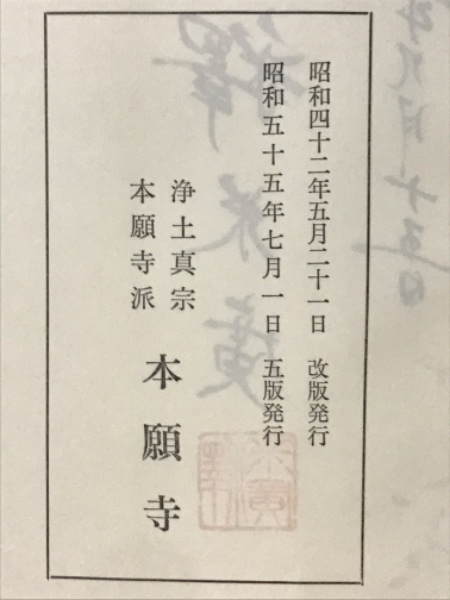 昭和四十二年五月二十一日 改版発行
昭和五十五年七月一日 五版発行
浄土真宗
本願寺派
本願寺